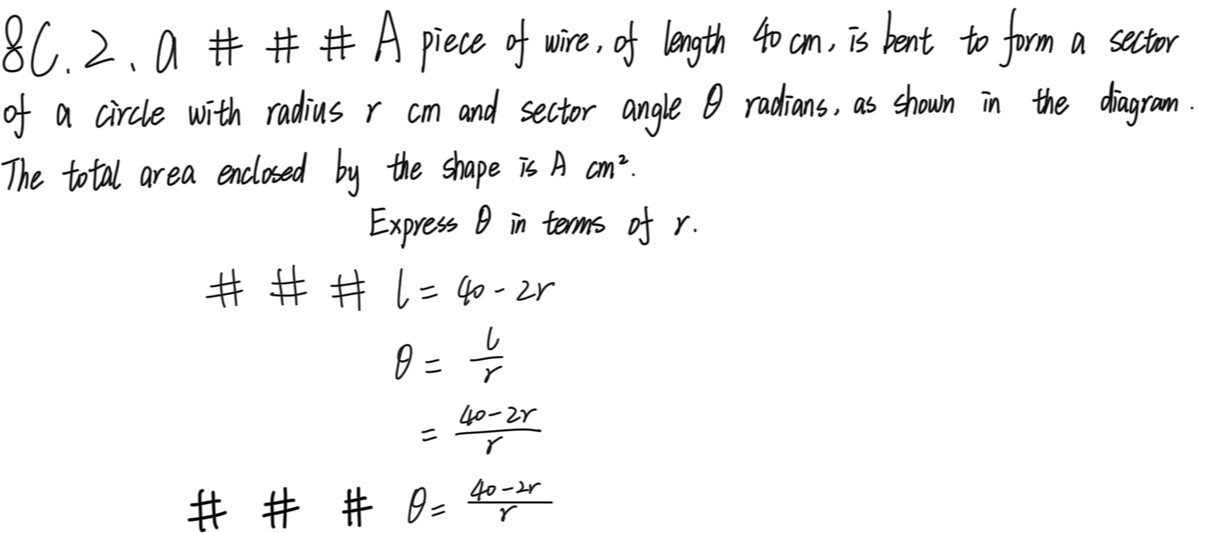 8C.2.a # # # A piece of wire, of length 40 cm, is bent to form a sector
of a circle with radius r cm and sector angle θ radians, as shown in the diagram.
The total area enclosed by the shape is A cm².
Express θ in terms of r.
# # # l = 40 - 2r
θ = l/r
= (40-2r)/r
# # # θ = (40-2r)/r